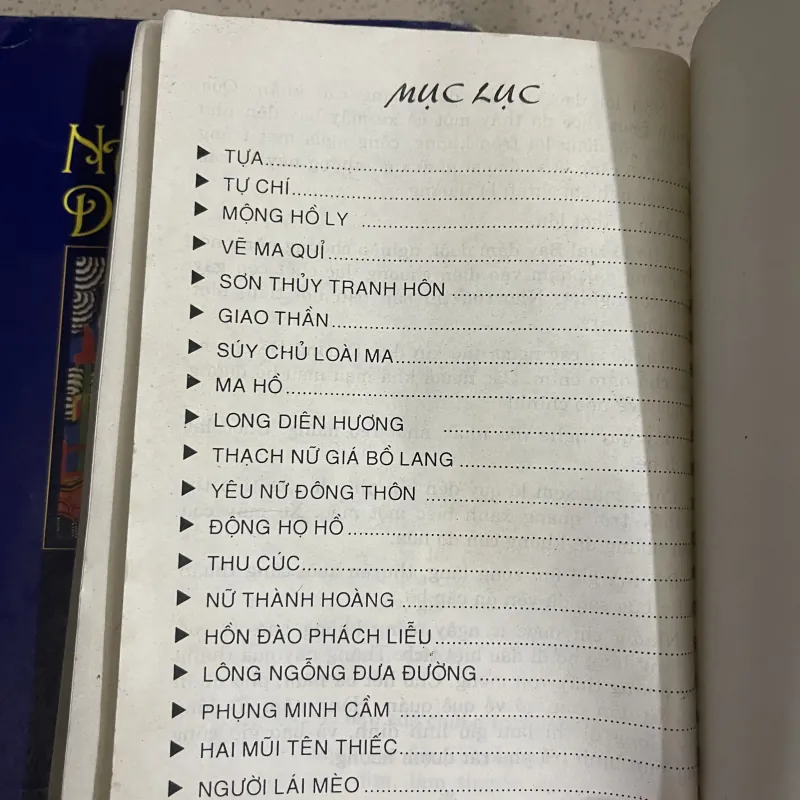 MỤC LỤC
TỰA
TỰ CHÍ
MỘNG HỒ LY
VẼ MA QUỈ
SƠN THỦY TRANH HÔN
GIAO THẦN
SÚY CHỦ LOÀI MA
MA HỒ
LONG DIÊN HƯƠNG
THẠCH NỮ GIÁ BỒ LANG
YÊU NỮ ĐÔNG THÔN
ĐỘNG HỌ HỒ
THU CÚC
NỮ THÀNH HOÀNG
HỒN ĐÀO PHÁCH LIỄU
LÔNG NGỖNG ĐƯA ĐƯỜNG
PHỤNG MINH CẦM
HAI MŨI TÊN THIẾC
NGƯỜI LÁI MÈO